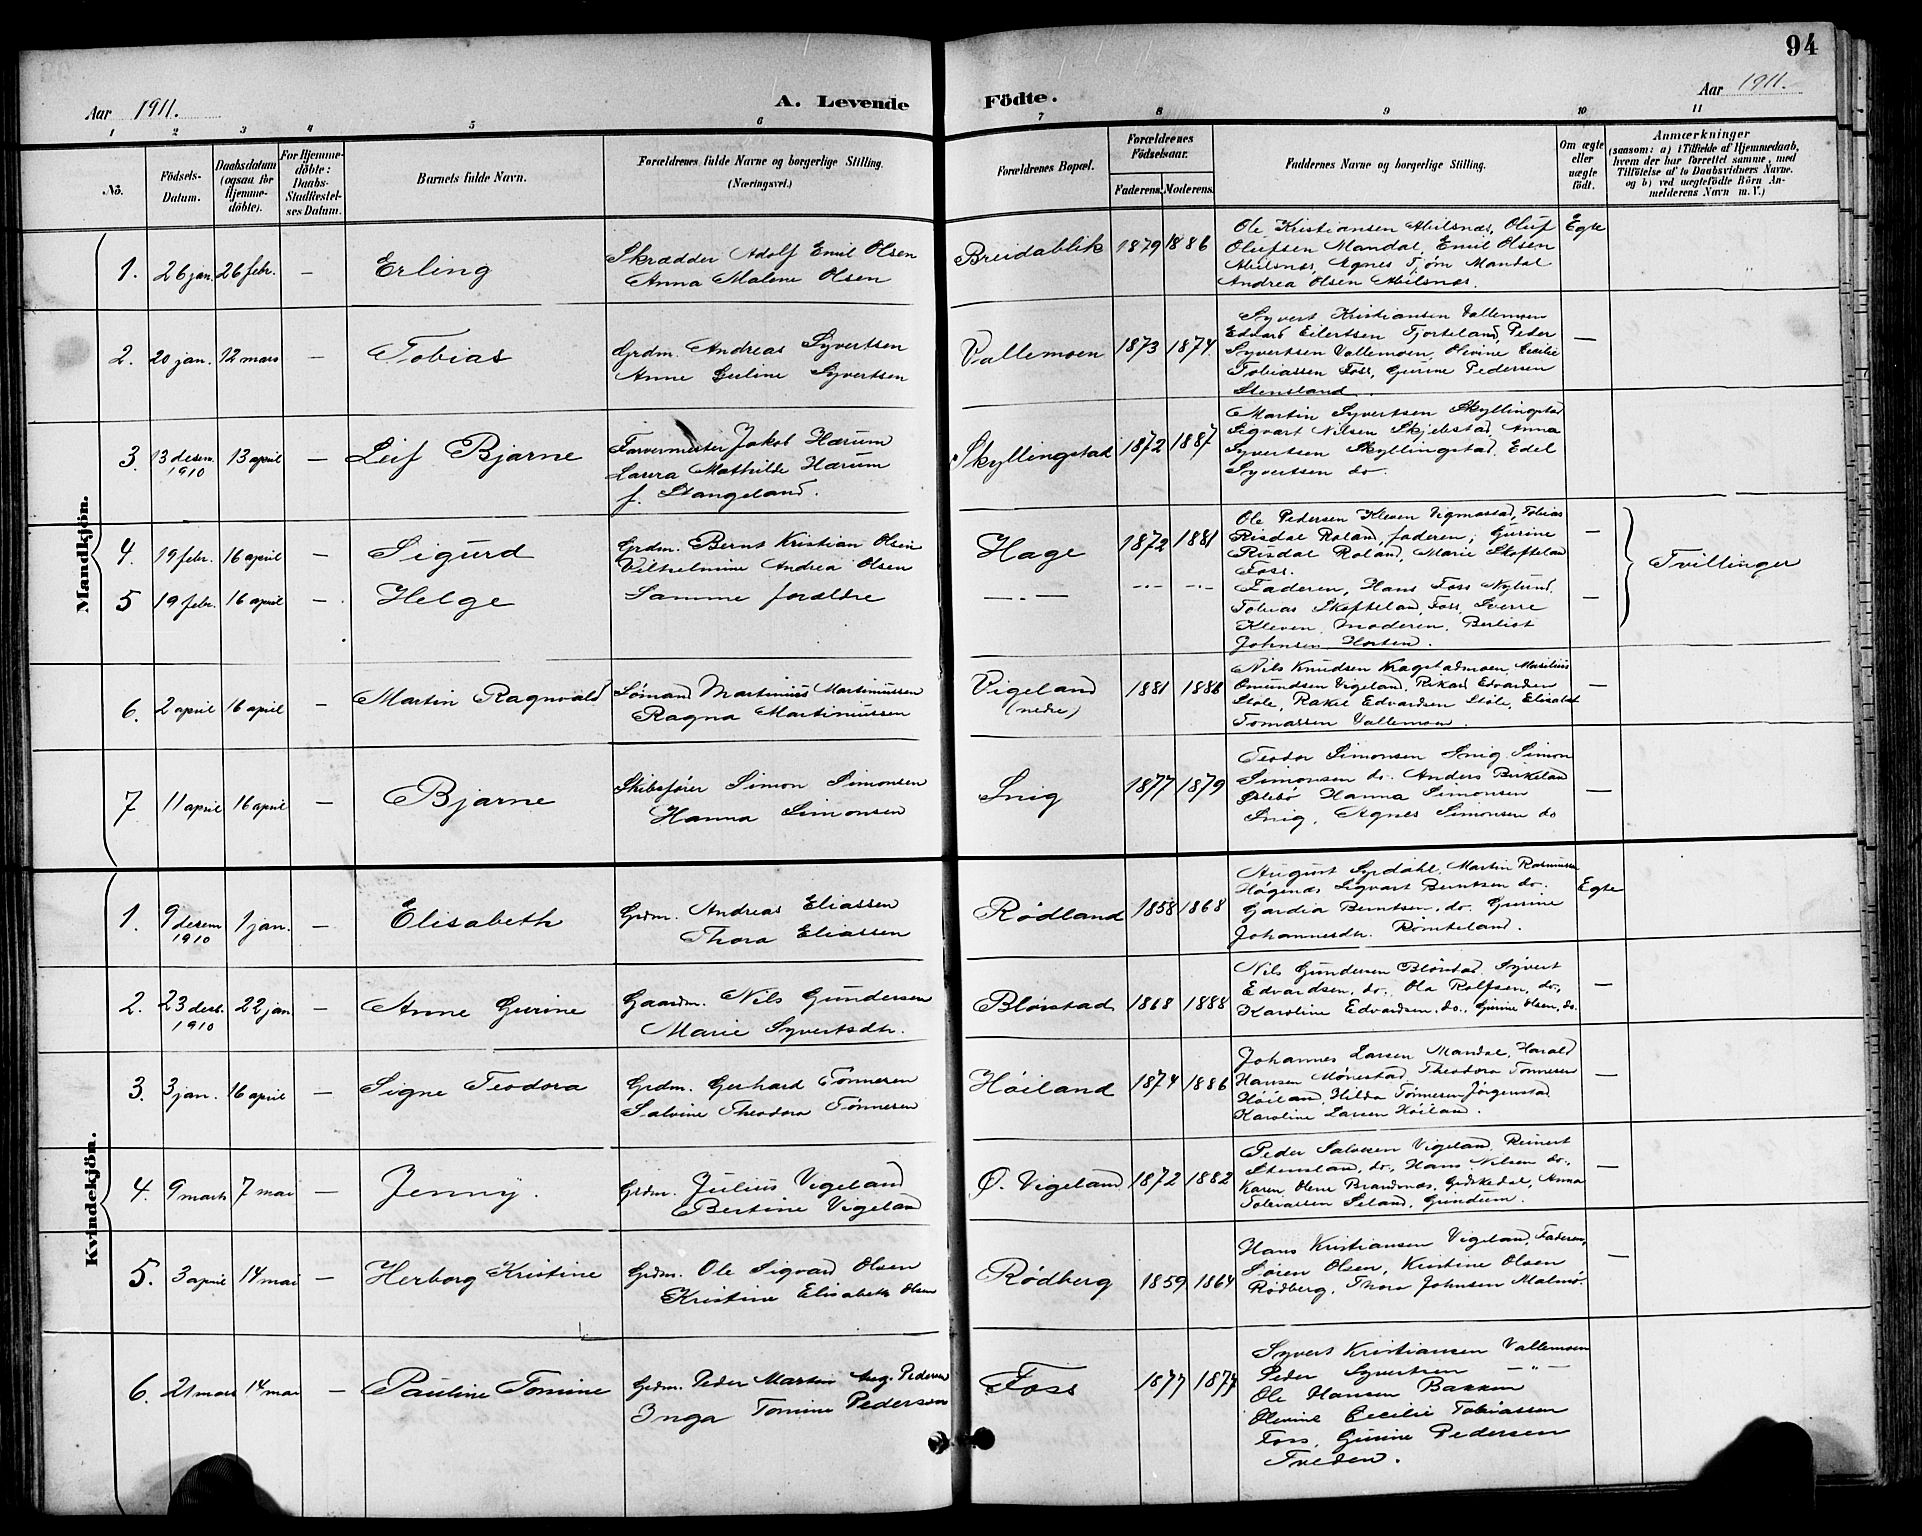 94
Aar 1911.
A. Levende Födte.
Aar 1911.
1 2 3 4 5 6 7 8 9 10 11
Nö.
Födsels-
Datum.
Daabsdatum
(ogsaa for
Hjemme-
döbte).
For Hjemme-
döbte:
Daabs-
Stadfæstel-
ses Datum.
Barnets fulde Navn.
Forældrenes fulde Navne og borgerlige Stilling.
(Næringsvei.)
Forældrenes Bopæl.
Forældrenes
Födselsaar.
Faderens. Moderens.
Faddernes Navne og borgerlige Stilling.
Om ægte
eller
uægte
födt.
Anmærkninger
(saasom: a) i Tilfælde af Hjemmedaab,
hvem der har forrettet samme, med
Tilföielse af to Daabsvidners Navne.
og b) ved uægtefödte Börn An-
melderens Navn m. V.)
Mandkjön.
1. 26 jan. 26 febr. — Erling
Skrædder Adolf Emil Olsen
Anna Malene Olsen
Breidablik 1879 1886
Ole Kristiansen Abilsnæs, Oluf
Olufsen Mandal, Emil Olsen
Abilsnæs, Agnes Tjøm Mandal
Andrea Olsen Abilsnæs.
Egte
2. 20 jan. 12 mars — Tobias
Grdm. Andreas Syvertsen
Anne Guline Syvertsen
Vallemoen 1873 1874
Syvert Kristiansen Vallemoen
Edvard Eilertsen Fjorteland, Peder
Syvertsen Vallemoen, Olevine Cecilie
Tobiassen Foss, Gurine Pedersen
Stensland.
—
3. 13 desem. 1910 13 april — Leif Bjarne
Farvermester Jakob Hærum
Laura Mathilde Hærum
f. Stangeland.
Skyllingstad 1872 1887
Martin Syvertsen Skyllingstad
Sigvart Nilsen Skjebstad, Anna
Syvertsen Skyllingstad, Edel
Syvertsen do.
4. 19 febr. 16 april — Sigurd
Grdm. Bernt Kristian Olsen
Vilhelmine Andrea Olsen
Hage 1872 1881
Ole Pedersen Kleven Vigmostad, Tobias
Risdal Roland, faderen, Gurine
Risdal Roland, Marie Skofteland
Foss.
—
Tvillinger
5 19 febr. 16 april — Helge
Samme forældre
—"— —"— —"—
Faderen, Hans Foss Nylund,
Tobias Skofteland, Foss, Sverre
Kleven, Moderen, Berliot
Johnsen Horten.
—
6. 2 april 16 april — Martin Ragnvald
Sømand Martinius Martinussen
Ragna Martiniussen
Vigeland
(nedre)
1881 1888
Nils Knudsen Kragstadmoen, Masilius
Omundsen Vigeland, Rikard Edvardsen
Støle, Rakel Edvardsen Støle, Elisabet
Tomassen Vallemoen.
—
7. 11 april 16 april — Bjarne
Skibsfører Simon Simonsen
Hanna Simonsen
Snig 1877 1879
Teodor Simonsen Snig Simon
Simonsen do. Anders Birkeland
Øslebø Hanna Simonsen
Snig, Agnes Simonsen do
—
Kvindekjön.
1. 9 desem 1910 1 jan. — Elisabeth
Grdm. Andreas Eliassen
Thora Eliassen
Rödland 1858 1868
August Syrdahl, Martin Rasmussen
Høgenæs Sigvart Berntsen do.
Gardia Berntsen, do. Gurine
Johannesdtr. Rømteland.
Egte
2. 23 desb. 1910 22 jan — Anne Gurine
Gaardm. Nils Gundersen
Marie Syvertsdtr.
Blörstad 1868 1888
Nils Gundersen Blörstad, Syvert
Edvardsen, do., Ola Rolfsen, do.,
Karoline Edvardsen, do., Gurine Olsen, do.
—
3. 3 jan. 16 april — Signe Teodora
Grdm. Gerhard Tønnesen
Salvine Theodora Tønnesen
Höiland 1874 1886
Johannes Larsen Mandal, Harald
Hansen Mønestad, Theodora Tønnesen
Høiland, Hilda Tønnesen Jørgenstad
Karoline Larsen Høiland.
—
4. 9 marts 7 mai — Jenny.
Grdm. Julius Vigeland
Bertine Vigeland
Ø. Vigeland 1872 1882
Peder Salvesen Vigeland, Reinert
Stensland, do., Hans Nilsen do.,
Karen Olene Brandsnæs, Gidskedal, Anna
Tobiassen Seland, Grindum.
—
5. 3 april 14 mai — Herborg Kristine
Grdm. Ole Sigvard Olsen
Kristine Elisabeth Olsen
Rödberg 1859 1864
Hans Kristiansen Vigeland, Faderen,
Sören Olsen, Kristine Olsen
Rödberg, Thora Johnsen Malmö.
—
6. 21 mars 14 mai — Pauline Tomine
Grdm. Peder Martin Aug. Pedersen
Inga Tomine Pedersen
Foss 1877 1877
Syvert Kristiansen Vallemoen
Peder Syvertsen —"—
Ole Hansen Bakken
Olevine Cecilie Tobiassen
Foss, Gurine Pedersen
Tveden.